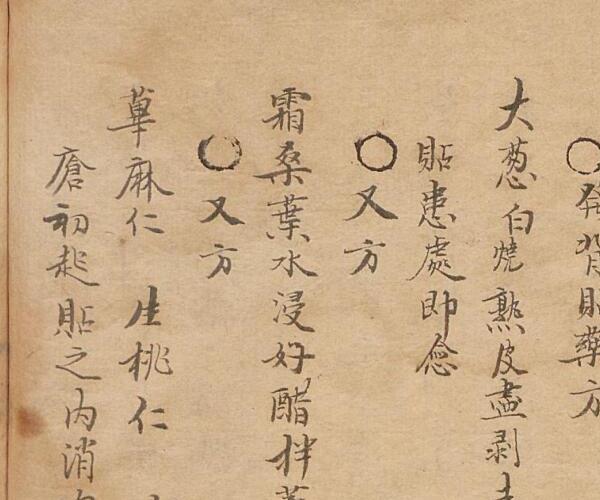 ○發背貼藥方
大葱白燒熟皮盡剥去
貼患處即愈
○又方
霜桑葉水浸好醋拌蒸
○又方
萆麻仁 生桃仁
瘡初起貼之内消